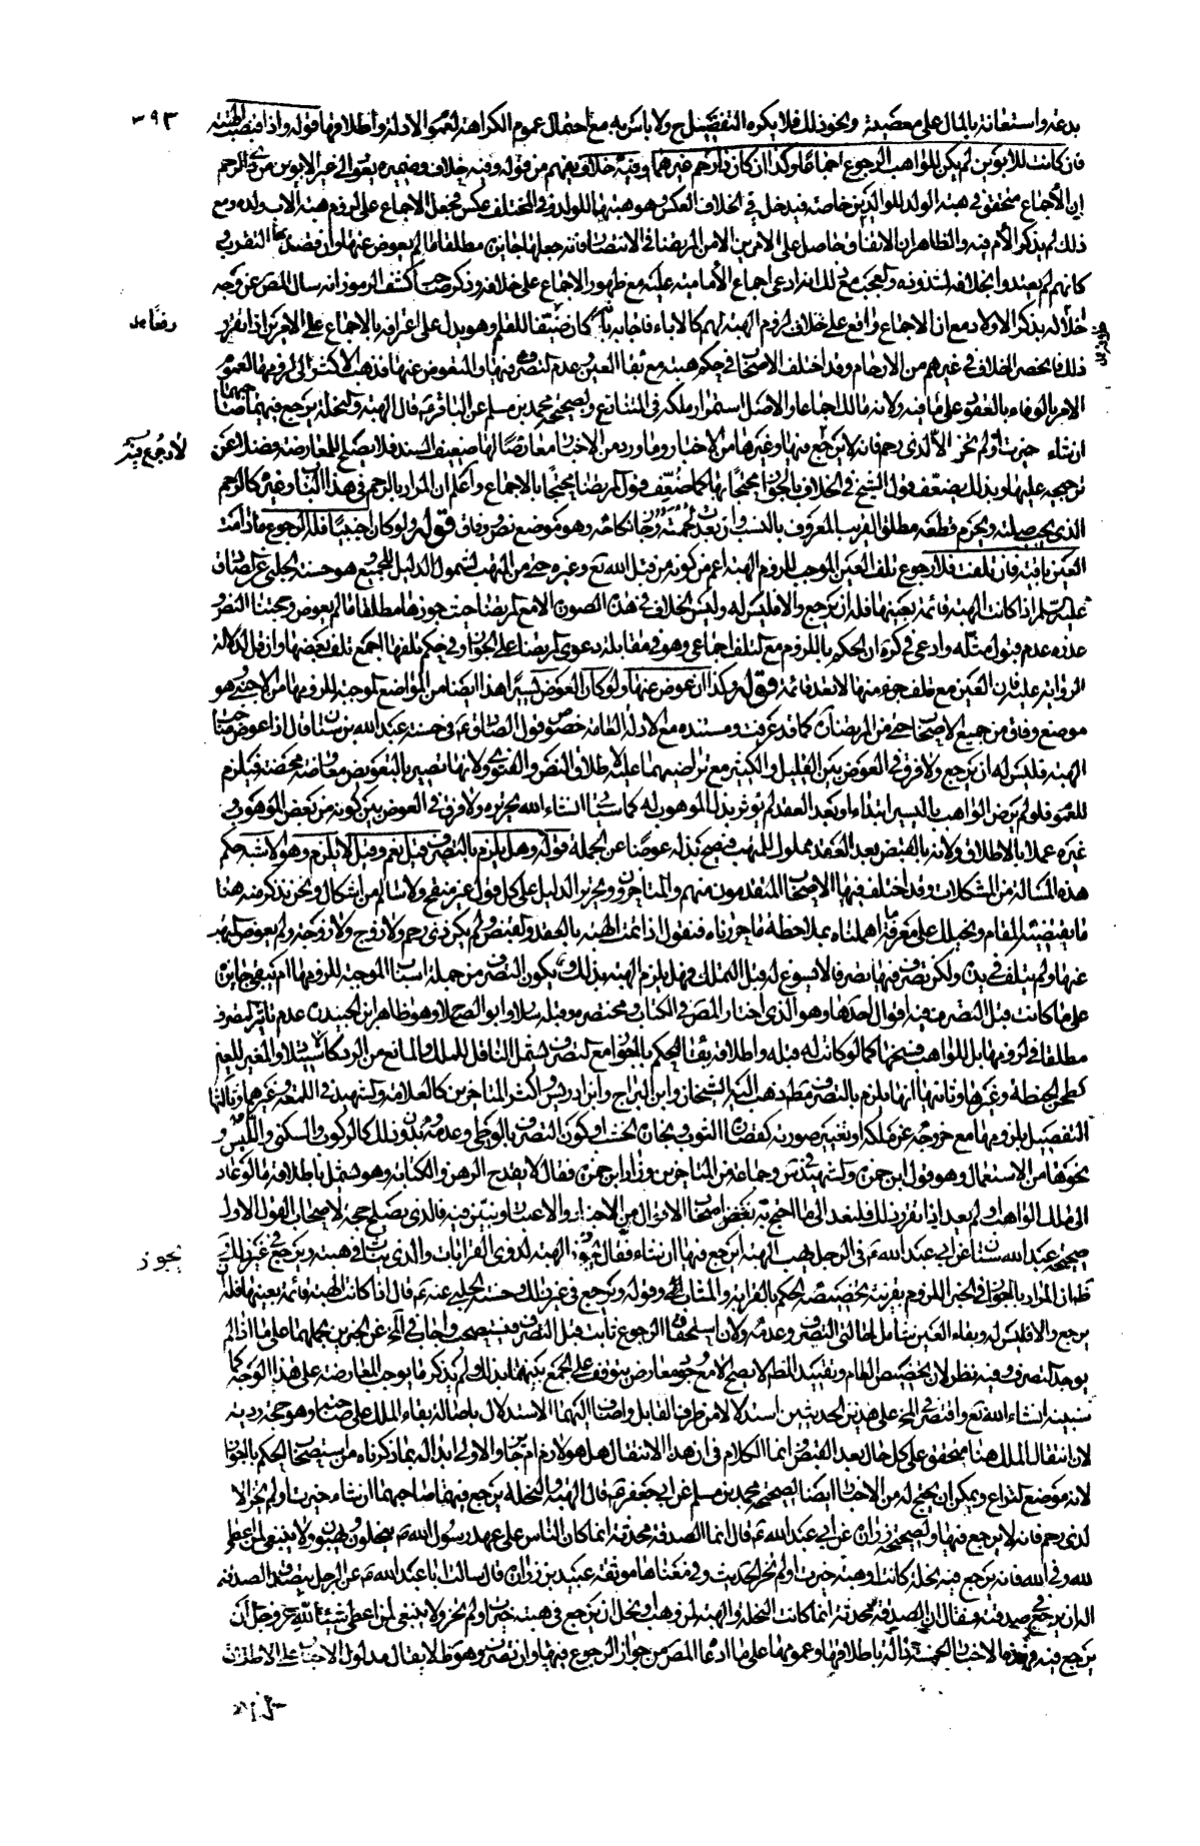 بدعته واستعانته بالمال على معصيته ونحو ذلك فلا يكره التفضيل ح ولا باس به مع احتمال عموم الكراهة لعموم الادلة واطلاقها قوله واذا قبضت الهبة
فان كانت للابوين لم يكن للواهب الرجوع اجماعا وكذا ان كان ذا رحم غيرهما وفيه خلاف يفهم من قوله وفيه خلاف وضميره يعود الى غير الابوين من ذي الرحم
ان الاجماع متحقق في هبة الولد للوالدين خاصة فيدخل في الخلاف العكس وهو هبتهما للولد وفي المختلف عكس فجعل الاجماع على لزوم هبة الاب ولده ومع
ذلك لم يذكر الام فيه والظاهر ان الاتفاق حاصل على الامرين الا من المرتضى في الانتصار فانه جعلها جائزة مطلقا ما لم يعوض عنها وان قصد بها التقرب
كانهم لم يعتدوا بخلافه لشذوذه والعجب مع ذلك انه ادعى اجماع الامامية عليه مع ظهور الاجماع على خلافه وذكر صاحب كشف الرموز انه سال المص عن وجه
اخلاله بذكر الاولاد مع ان الاجماع واقع على خلاف لزوم الهبة لهم كالاباء فاجابه بانه كان تبعا للفظ وهو يدل على اعترافه بالاجماع على الامرين اذا تقرر
ذلك فانحصر الخلاف في غيرهم من الارحام وقد اختلف الاصحاب في حكم هبته مع بقاء العين وعدم التصرف فيها والتعوض عنها فذهب الاكثر الى لزومها لعموم
الامر بالوفاء بالعقود على ما فيه ولانه مالك اجماعا والاصل استمرار ملكه في المتنازع ولصحيحة محمد بن مسلم عن الباقر ع قال الهبة والنحلة يرجع فيهما صاحبهما
ان شاء حيزت او لم تحز الا لذي رحم فانه لا يرجع فيها وغيرها من الاخبار وما ورد من الاخبار معارضا لها ضعيف السند فلا يصلح للمعارضة فضلا عن
ترجيحه عليها وبذلك يضعف قول الشيخ في الخلاف بالجواز محتجا بها كما ضعف قول المرتضى محتجا بالاجماع واعلم ان المراد بالرحم في هذا الباب وغيره كالرحم
الذي يجب صلته ويحرم قطعه مطلق القريب المعروف بالنسب وان بعدت لحمته وجاز نكاحه وهو موضع نص ووفاق قوله ولو كان اجنبيا فله الرجوع ما دامت
العين باقية فان تلفت فلا رجوع تلف العين الموجب للزوم الهبة اعم من كونه من قبل الله تع وغيره حتى من المتهب لشمول الدليل للجميع وهو حسنة الحلبي عن الصادق
عليه السلم اذا كانت الهبة قائمة بعينها فله ان يرجع والا فليس له وليس الخلاف في هذه الصورة الا مع المرتضى حيث جوزها مطلقا ما لم يعوض وحجتنا النص و
عذره عدم قبول مثله وادعى في كره ان الحكم باللزوم مع التلف اجماعي وهو في مقابلة دعوى المرتضى على الجواز وفي حكم تلفها اجمع تلف بعضها وان قل لدلالة
الرواية عليه فان العين مع تلف جزء منها لا تعد قائمة قوله وكذا ان عوض عنها ولو كان العوض يسيرا هذا ايضا من المواضع الموجبة للزومها من الاجنبي وهو
موضع وفاق من جميع الاصحاب حتى من المرتضى كما قد عرفت ومستنده مع الادلة العامة خصوص قول الصادق ع في حسنة عبد الله بن سنان قال اذا عوض صاحب
الهبة فليس له ان يرجع ولا فرق في العوض بين القليل والكثير مع تراضيهما عليه لاطلاق النص والفتوى ولانها تصير بالتعويض معاوضة محضة فيلزم
للعموم فلو لم يرض الواهب باليسير ابتداء او بعد العقد لم يؤثر بذل الموهوب له كما سياتي ان شاء الله تحريره ولا فرق في العوض بين كونه من بعض الموهوب و
غيره عملا بالاطلاق ولانه بالقبض بعد العقد مملوك للمتهب فيصح بذله عوضا عن الجملة قوله وهل يلزم بالتصرف قيل نعم وقيل لا يلزم وهو الاشبه حكم
هذه المسالة من المشكلات وقد اختلف فيها الاصحاب المتقدمون منهم والمتاخرون وتحرير الدليل على كل قول غير منقح ولا سالم من اشكال ونحن نذكر منه هنا
ما يقتضيه المقام ونحيلك على معرفة ما اهملناه بملاحظة ما حررناه فنقول اذا تمت الهبة بالعقد والقبض ولم يكن ذي رحم ولا زوج ولا زوجة ولم يعوض المتهب
عنها ولم يتلف في يده ولكن تصرف فيها تصرفا لا يسوغ له قبل التملك فهل يلزم الهبة بذلك ويكون التصرف من جملة اسباب الموجبة للزومها ام تبقى جايزة
على ما كانت قبل التصرف فيه اقوال احدها وهو الذي اختار المص في الكتاب ومختصره وقبله سلار وابو الصلاح وهو ظاهر ابن الجنيد عدم تاثير التصرف
مطلقا في لزومها بل للواهب فسخها كما لو كانت له قبله واطلاقه بقاء الحكم بالجواز مع التصرف يشمل الناقل للملك والمانع من الرد كالاستيلاد والمغير للعين
كطحن الحنطة وغيرها وثانيها انها تلزم بالتصرف مط ذهب اليه الشيخان وابن البراج وابن ادريس واكثر المتاخرين كالعلامة والشهيد في اللمعة وغيرها وثالثها
التفصيل بلزومها مع خروجه عن ملكه او تغيير صورته كقصارة الثوب ونجارة الخشب او كون التصرف بالوطي وعدمه بدون ذلك كالركوب والسكنى واللبس و
نحوها من الاستعمال وهو قول ابن حمزة والشهيد في س وجماعة من المتاخرين وزاد ابن حمزة فقال لا يقدح الرهن والكتابة وهو يشمل باطلاقه ما لو عاد
الى ملك الواهب او لم يعد اذا تقرر ذلك فلنعد الى ما احتج به بعض اصحاب الاقوال من الاخبار والاعتبار ونبين فيه فالذي يصلح حجة لاصحاب القول الاول
صحيحة عبد الله بن سنان عن ابي عبد الله ع في الرجل يهب الهبة ايرجع فيها ان شاء فقال تجوز الهبة لذوي القرابات والذي يثاب في هبته ويرجع في غير ذلك
فان المراد بالجواز في الخبر اللزوم بقرينة تخصيصه الحكم بالقرابة والمثاب وقوله ويرجع في غير ذلك وحسنة الحلبي عنه ع قال اذا كانت الهبة قائمة بعينها فله
يرجع والا فليس له وبقاء العين شامل لحالتي التصرف وعدمه ولان استحقاق الرجوع ثابت قبل التصرف فيستصحب واجاب في المخ عن الخبرين بحملهما على ما اذا لم
يوجد التصرف وفيه نظر لان تخصيص العام وتقييد المطلق لا يصح الا مع وجود معارض يتوقف على الجمع بينهما بذلك ولم يذكر ما يوجب المعارضة على هذا الوجه كما
سنبينه انشاء الله تع واقتصر في المخ على هذين الحديثين استدلالا من طرف القايل واضاف اليهما الاستدلال باصالة بقاء الملك على صاحبها وهو حجة ردية
لان انتقال الملك هنا متحقق على كل حال بعد القبض وانما الكلام في ان هذا الانتقال هل هو لازم ام جايز والاولى ابداله بما ذكرناه من استصحاب الحكم بالجواز
لانه موضع النزاع ويمكن ان يحتج له من الاخبار ايضا بصحيحة محمد بن مسلم عن ابي جعفر ع قال الهبة والنحلة يرجع فيهما صاحبهما ان شاء حيزت او لم تحز الا
لذي رحم فانه لا يرجع فيها ولصحيحة زرارة عن ابي عبد الله ع قال انما الصدقة محدثة انما كان الناس على عهد رسول الله ص ينحلون ويهبون ولا ينبغي لمن اعطى
لله وفي الله فانه يرجع فيه نحلة كانت او هبة حيزت او لم تحز الحديث وفي معناها موثقة عبيد بن زرارة قال سالت ابا عبد الله ع عن الرجل يتصدق بالصدقة
اله ان يرجع في صدقته فقال ان الصدقة محدثة انما كانت النحلة والهبة لمن وهب او نحل ان يرجع في هبته حيزت او لم تحز ولا ينبغي لمن اعطى شيئا لله عز وجل ان
يرجع فيه فهذه الاخبار الخمسة دالة باطلاقها وعمومها على ما ادعاه المص من جواز الرجوع فيها وان تصرف وهو ظ لا يقال مدلول الاخبار على الاطلاق
٣٩٣
لا رجوع فيه
يجوز